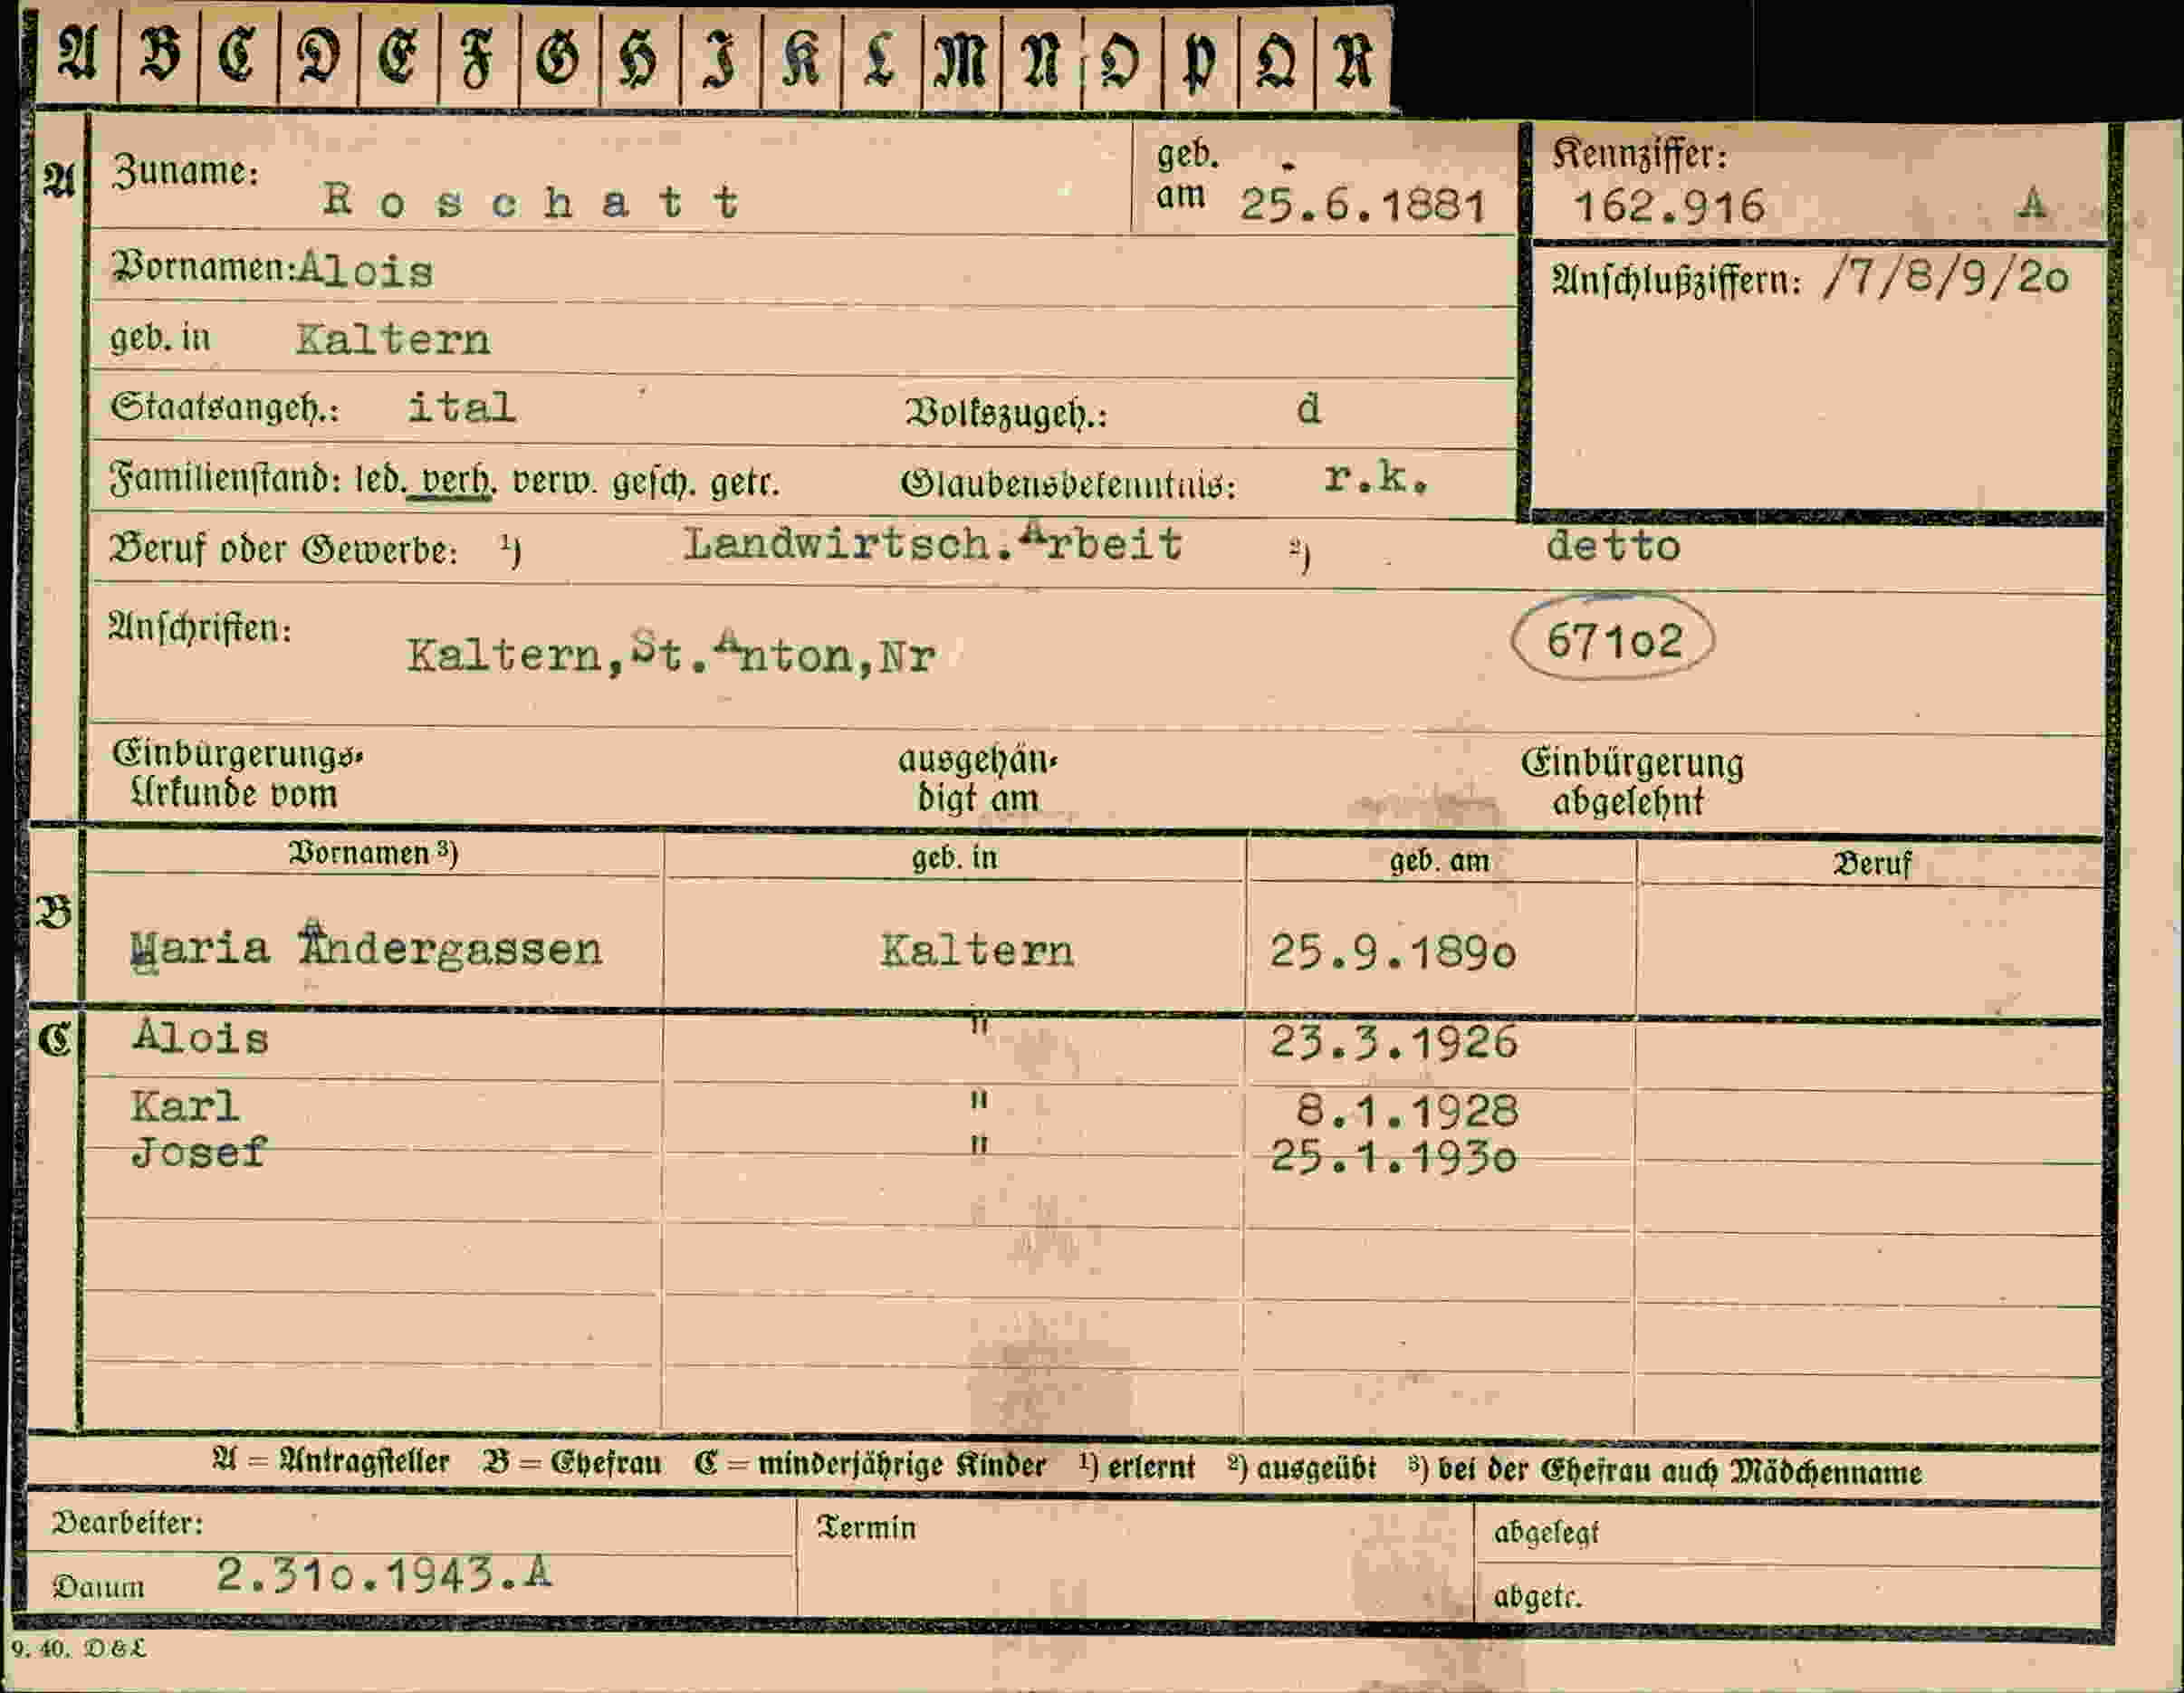 A B C D E F G H I K L M N O P Q R
A
Zuname: Roschatt
geb. am 25.6.1881
Kennziffer: 162.916 A
Vornamen: Alois
Anschlußziffern: /7/8/9/2o
geb. in Kaltern
Staatsangeh.: ital Volkszugeh.: d
Familienstand: led. verh. verw. gesch. getr. Glaubensbekenntnis: r.k.
Beruf oder Gewerbe: ¹) Landwirtsch.Arbeit ²) detto
Anschriften: Kaltern,St.Anton,Nr 671o2
Einbürgerungs-
Urkunde vom
ausgehän-
digt am
Einbürgerung
abgelehnt
B
Vornamen ³) geb. in geb. am Beruf
Maria Andergassen Kaltern 25.9.189o
C
Alois " 23.3.1926
Karl " 8.1.1928
Josef " 25.1.193o
A = Antragsteller B = Ehefrau C = minderjährige Kinder ¹) erlernt ²) ausgeübt ³) bei der Ehefrau auch Mädchenname
Bearbeiter:
Datum 2.31o.1943.A
Termin
abgelegt
abgetr.
9. 40. D & L